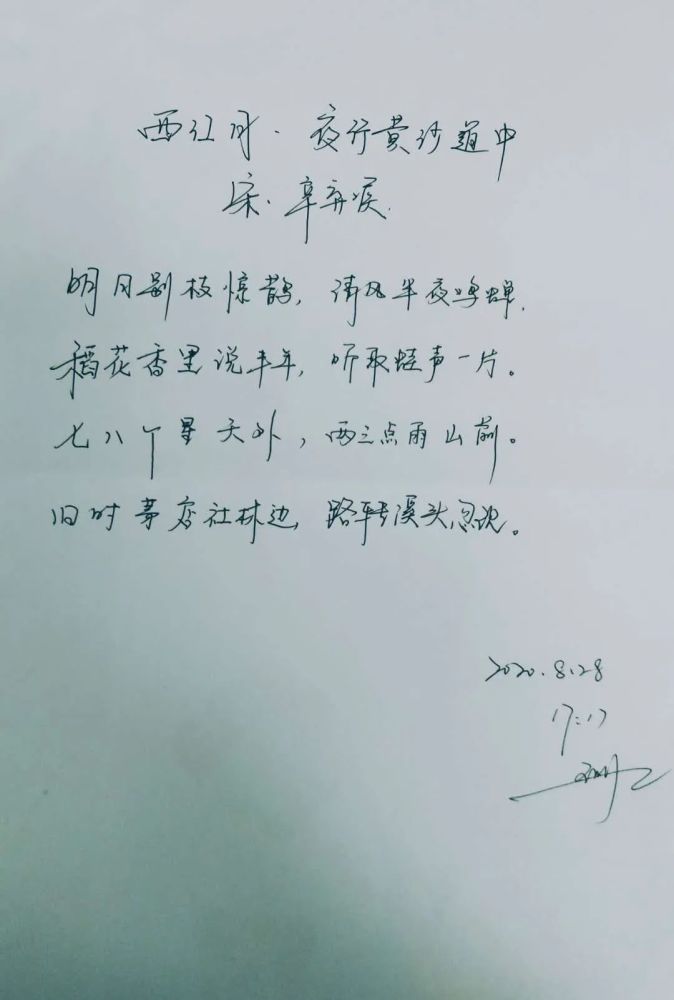 西江月·夜行黄沙道中
宋·辛弃疾.
明月别枝惊鹊,清风半夜鸣蝉.
稻花香里说丰年,听取蛙声一片。
七八个星天外,两三点雨山前。
旧时茅店社林边,路转溪头忽见。
2020.8.28
17:17